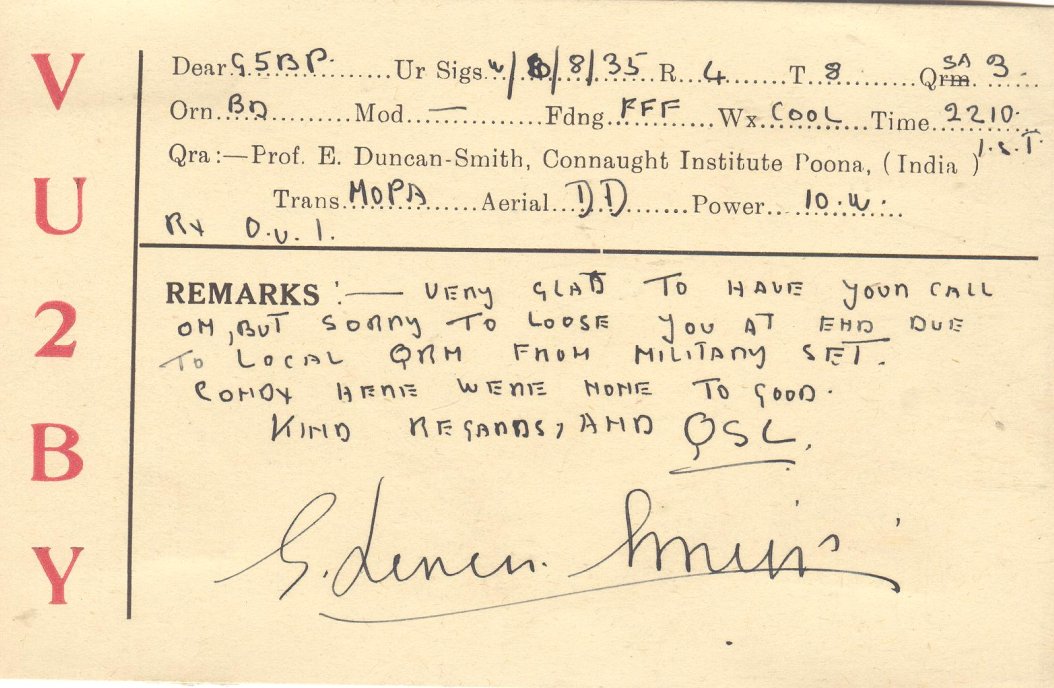 VU2BY
Dear G5BP. Ur Sigs w/8/8/35 R 4 T 8 Qrm SA 3.
Orn BD Mod — Fdng FFF Wx COOL Time 2210. I.S.T.
Qra:—Prof. E. Duncan-Smith, Connaught Institute Poona, (India)
Trans MOPA Aerial DD Power 10.W.
Rx O.V.1.
REMARKS :— VERY GLAD TO HAVE YOUR CALL
OM, BUT SORRY TO LOOSE YOU AT END DUE
TO LOCAL QRM FROM MILITARY SET.
CONDX HERE WERE NONE TO GOOD.
KIND REGARDS, AND QSL.
E. Duncan Smith